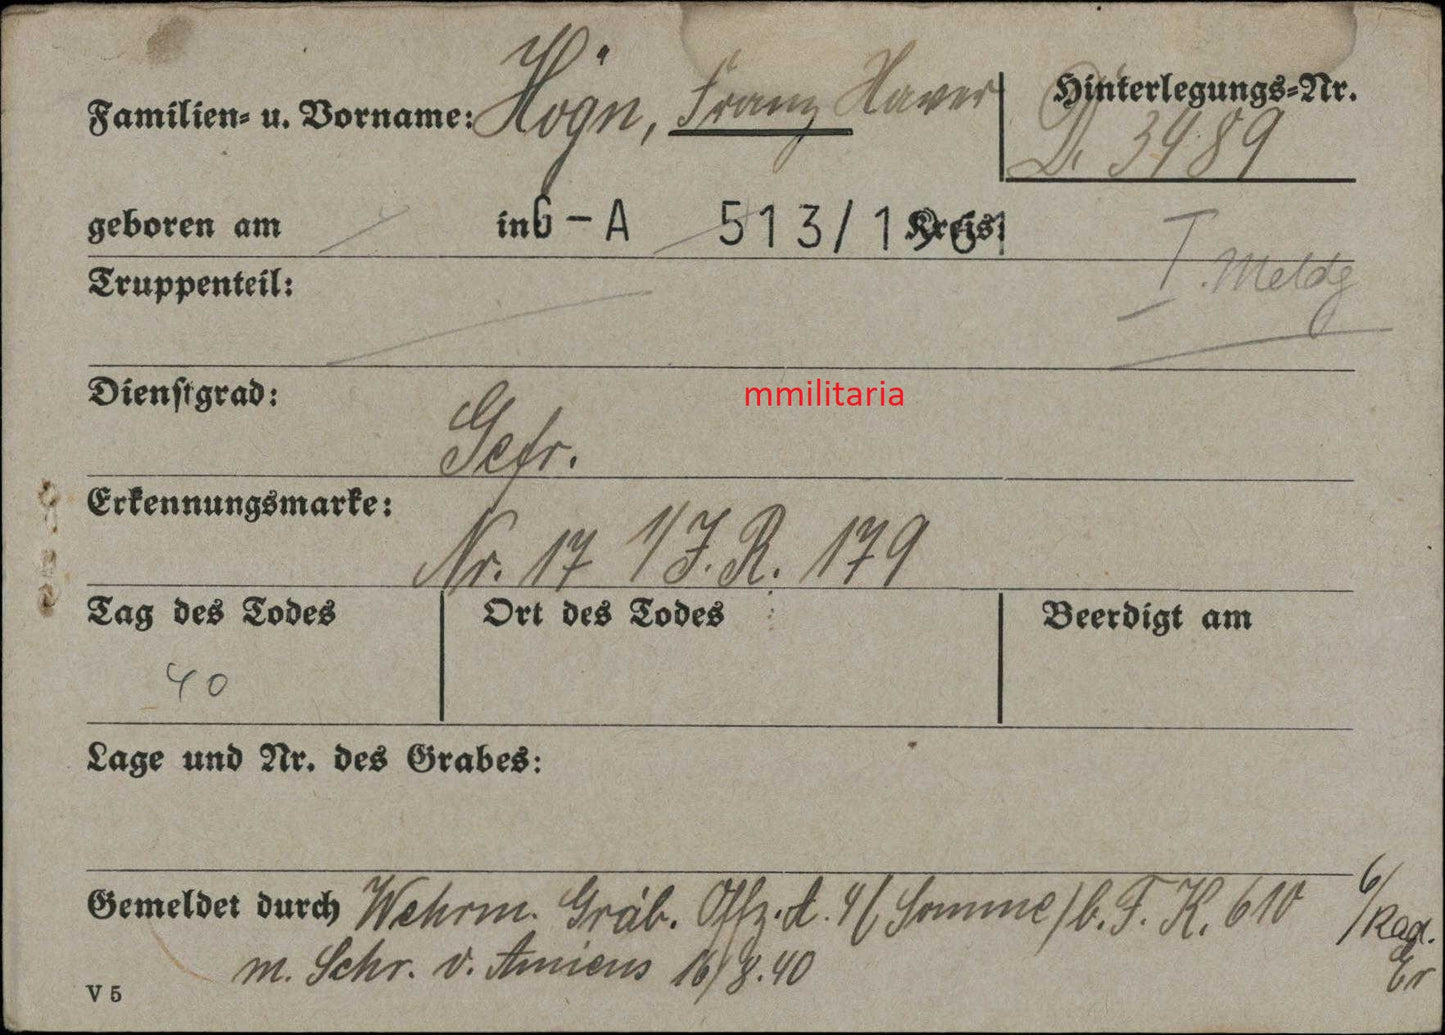 Familien- u. Vorname: Högn, Franz Xaver
Hinterlegungs-Nr.
D. 3989
geboren am in G-A 513/1961 Kreis:
I. Meldg
Truppenteil:
Dienstgrad:
mmilitaria
Gefr.
Erkennungsmarke:
Nr. 17 1/J.R. 179
Tag des Todes Ort des Todes Beerdigt am
40
Lage und Nr. des Grabes:
Gemeldet durch Wehrm. Gräb. Offz. d. 4 (Somme) b. F. K. 610
m. Schr. v. Amiens 16/8.40
V 5